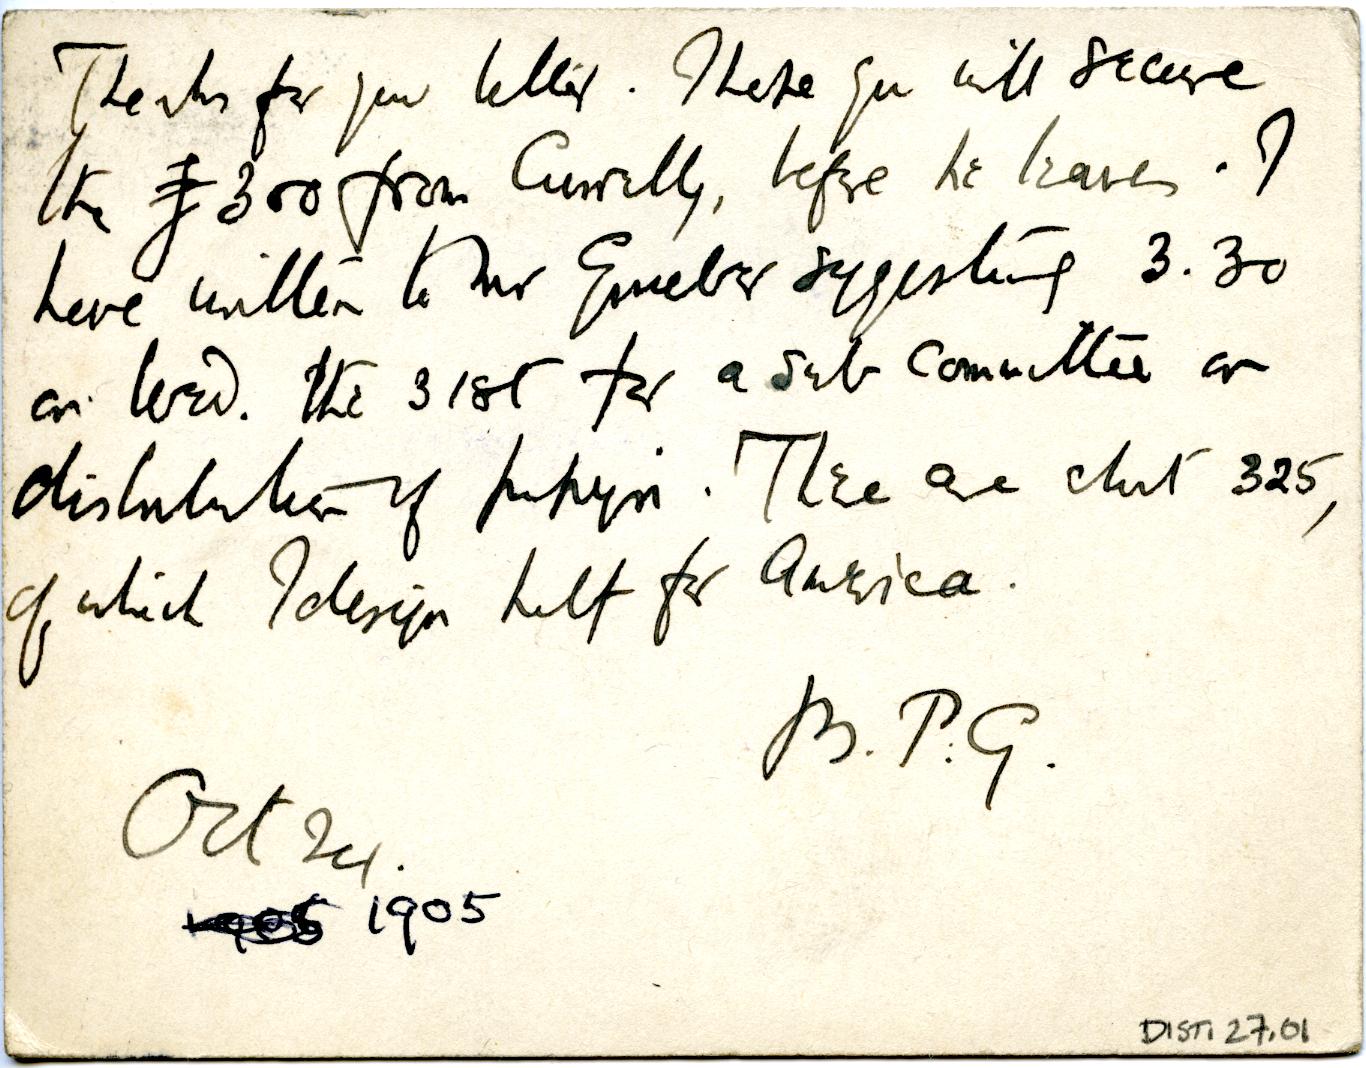 Thanks for your letter. I hope you will secure
the £300 from Currelly, before he leaves. I
have written to Mr Grueber suggesting 3.30
on Wed. the 31st for a Sub Committee on
distribution of papyri. There are about 325,
of which I design half for America.
B. P. G.
Oct 24.
1905 1905
DIST. 27.01